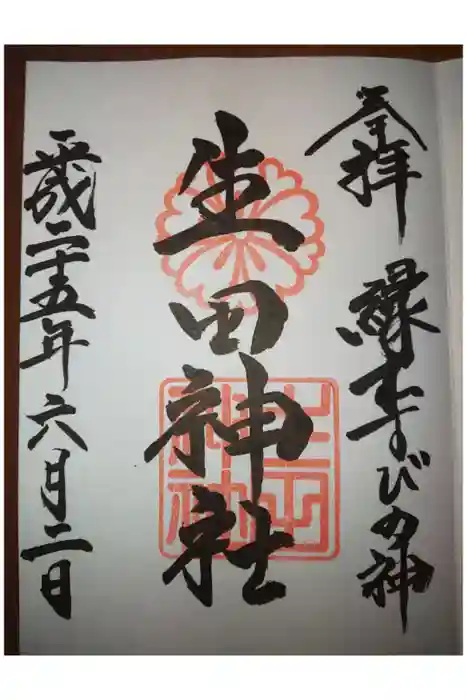 奉拝 縁むすびの神
生田神社
平成二十五年六月二日
生田神社